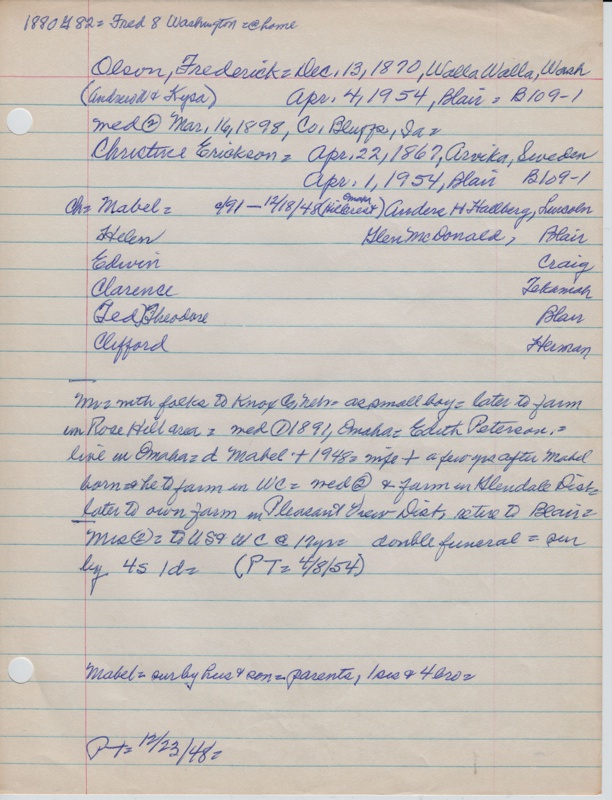 1880 # 82 = Fred 8 Washington = @ home
Olson, Frederick = Dec. 13, 1870, Walla Walla, Wash
(Andrew & Kysa) Apr. 4, 1954, Blair = B109-1
med ② Mar. 16, 1898, Co. Bluffs, Ia =
Christine Erickson = Apr. 22, 1867, Arvika, Sweden
Apr. 1, 1954, Blair B109-1
Ch = Mabel = 9/91 - 12/18/48 (Omaha Hillcrest) Anders H Hallberg, Lincoln
Helen Glen McDonald, Blair
Edwin Craig
Clarence Tekamah
(Ted) Theodore Blair
Clifford Herman
Mr = with folks to Knox Co, Nebr as small boy = later to farm
in Rose Hill area = med ① 1891, Omaha = Edith Peterson =
live in Omaha = d Mabel + 1948 = wife + a few yrs after Mabel
born = he to farm in WC = med ② & farm in Glendale Dist =
later to own farm in Pleasant View Dist, retire to Blair =
Mrs ② = to US & WC @ 17 yr = double funeral = sur
by 4s 1d = (PT = 4/8/54)
Mabel = sur by hus & son = parents, 1 sis & 4 bro =
PT = 12/23/48 =